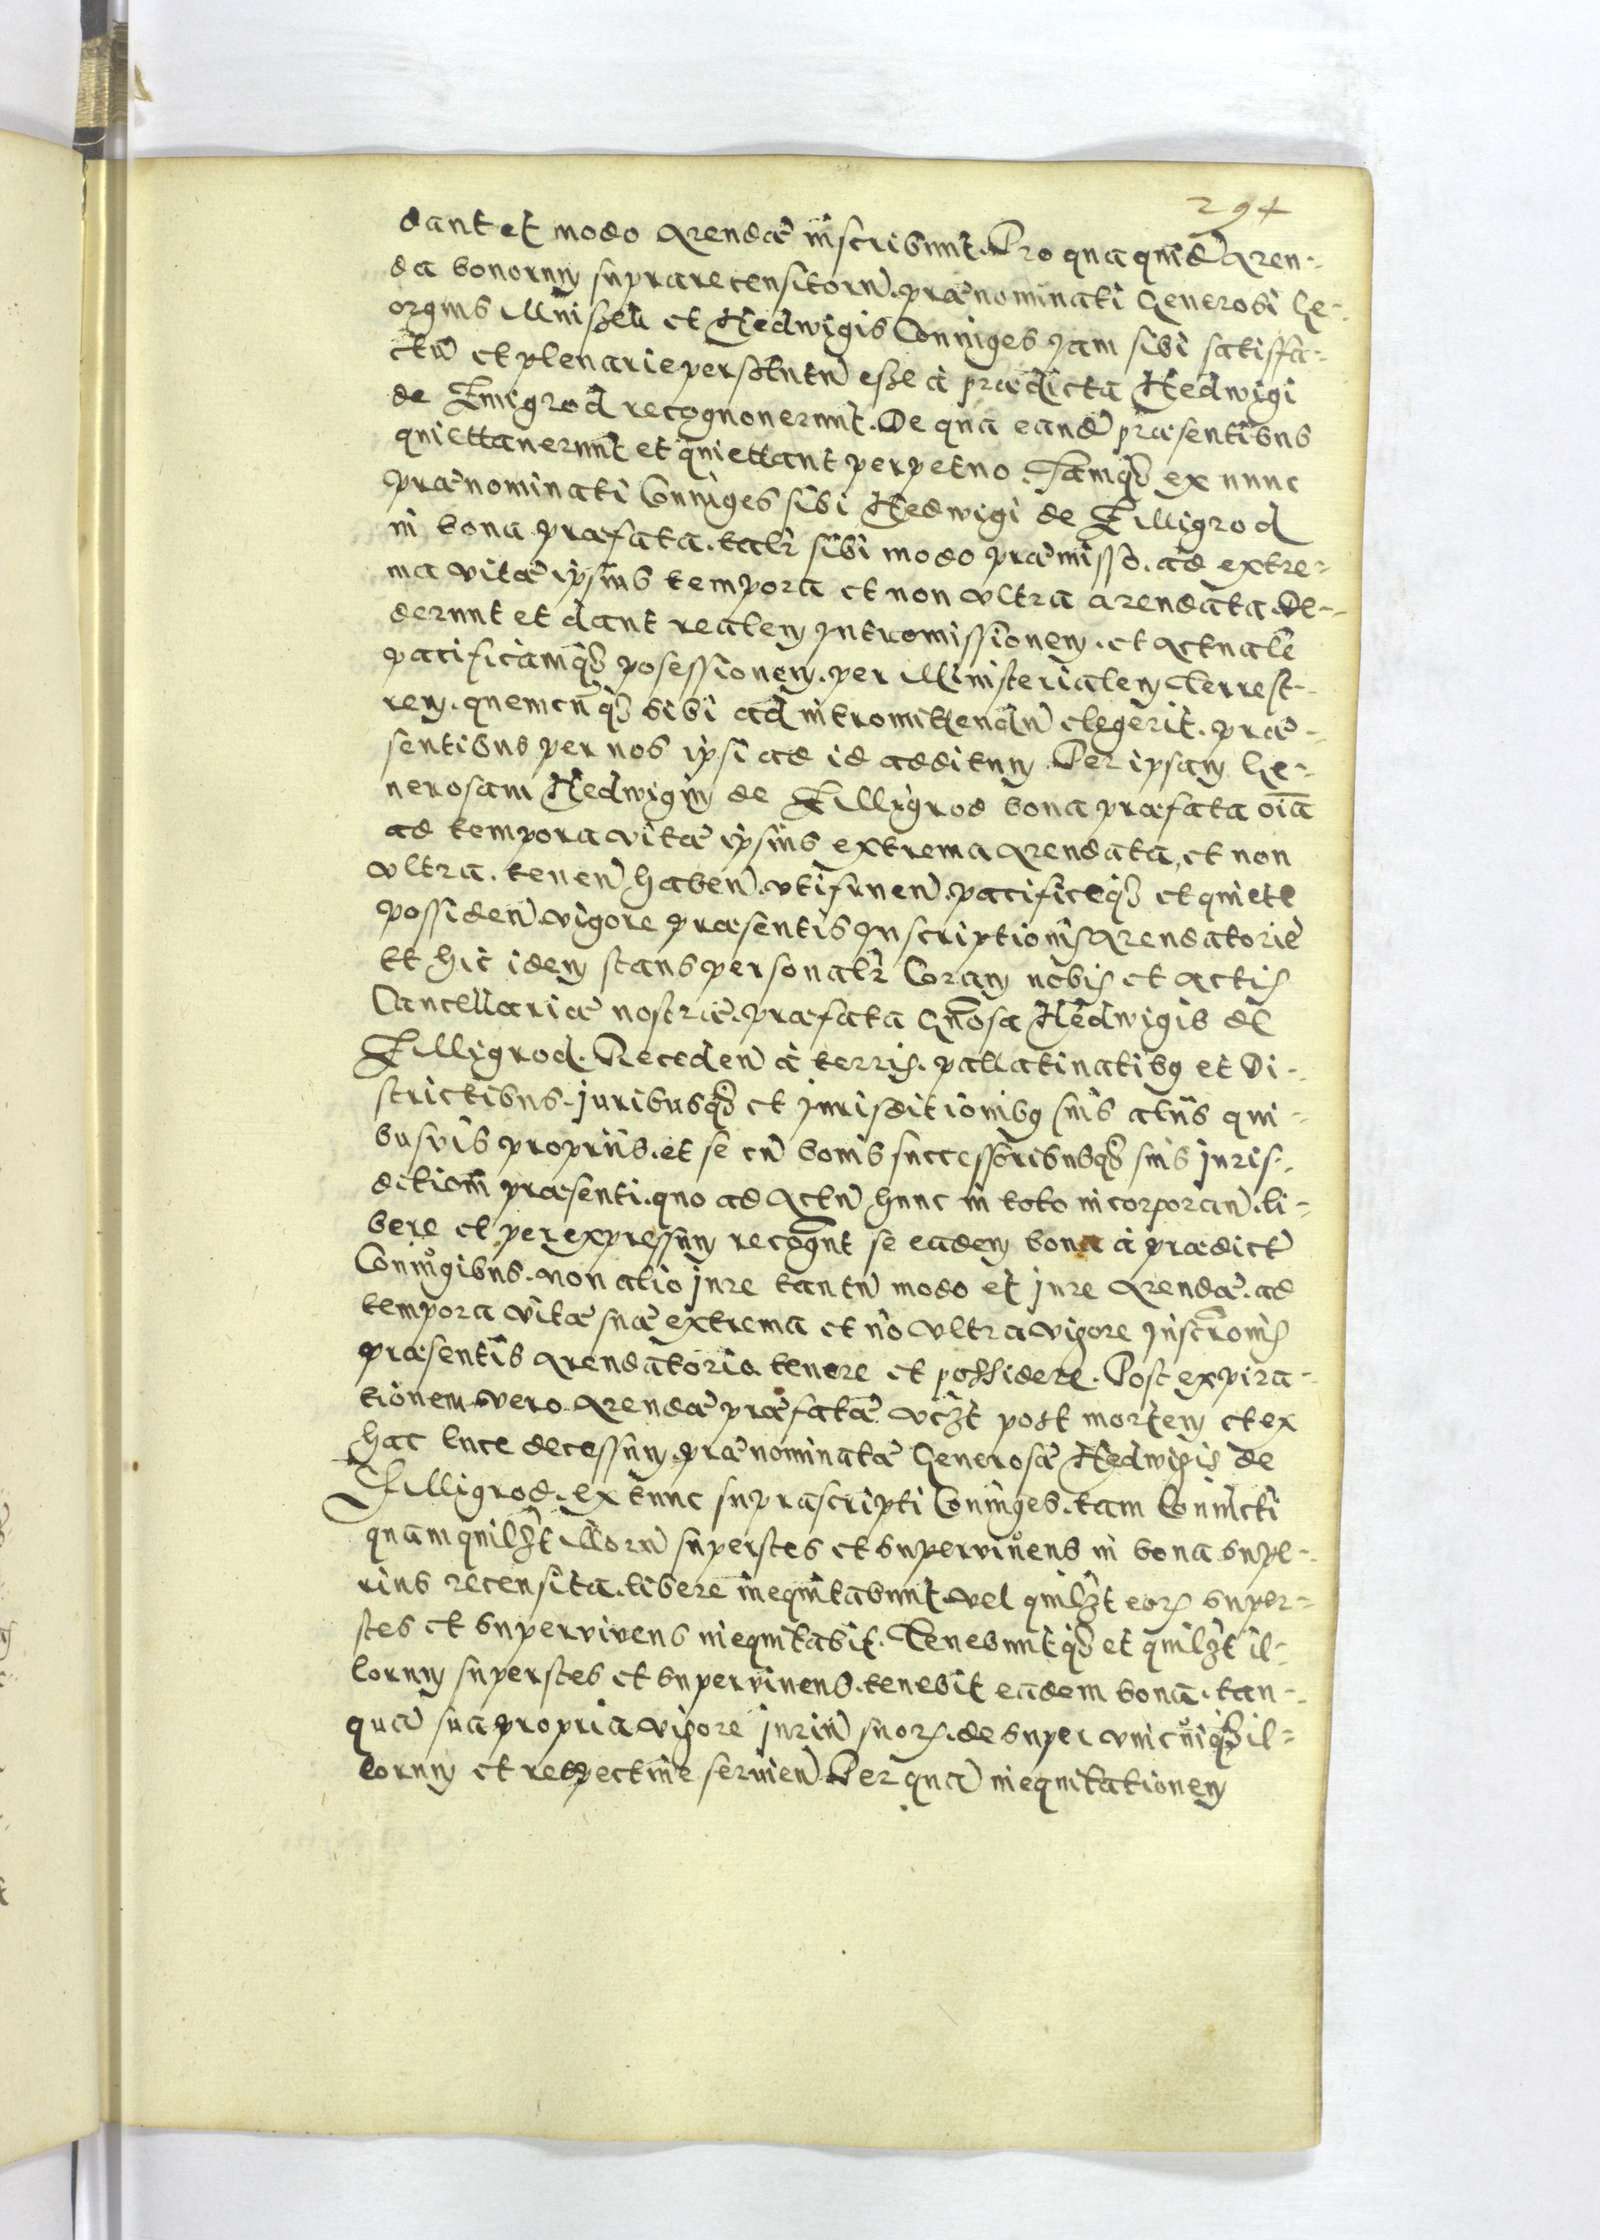 294
dant et modo Arendæ inscribunt. Pro qua quidē Aren-
da bonorum suprarecensitorū. prænominati Generosi Ge-
orgius Mniszek et Hedwigis Coniuges jam sibi satisfa-
ctū et plenarie persolutū esse à prædicta Hedwigi
de Zmigrod recognouerunt. De qua eandē præsentibus
quiettauerunt et quiettant perpetuo. Iamqȝ ex nunc
prænominati Coniuges sibi Hedwigi de Zmigrod
in bona præfata. talr sibi modo præmisso. ad extre-
ma vitæ ipsius tempora et non vltra arendata. De-
derunt et dant realem Intromissionem. et Actualē
pacificamqȝ posessionem. per Ministerialem Terrest-
rem. quemcūqȝ sibi ad intromittendū elegerit. præ-
sentibus per nos ipsi ad id additum Per ipsam Ge-
nerosam Hedwigim de Zmigrod bona præfata oīa
ad tempora vitæ ipsius extrema Arendata, et non
vltra. tenen̄ haben̄. vtifruen̄. pacificeqȝ et quiete
possiden̄. vigore præsentis Inscriptionis Arendatoriè
Et hic idem stans personalr Coram nobis et Actis
Cancellariæ nostræ. præfata Gn̄osa Hedwigis de
Zmigrod. Receden̄ à terris. pallatinatibȝ et Di-
strictibus. juribusqȝ et jurisditionibȝ suis aliis qui-
busvis propriis. et se cū bonis successoribusqȝ suis juris-
ditioni præsenti. quo ad Actū hunc in toto incorporan̄. li-
bere et per expressum recogn̄t se eadem bona à prædict̄
Coniugibus. non alio jure tantū modo et jure Arendæ. ad
tempora vitæ suæ extrema et nō vltra vigore Inscr̄onis
præsentis Arendatoriæ tenere et possidere. Post expira-
tionem vero Arendæ præfatæ vcȝt post mortem et ex
hac luce decessum. prænominatæ Generosæ Hedwigis de
Zmigrod. ex tunc suprascripti Coniuges. tam coniūcti
quam quilȝt illorū superstes et supervivens in bona supe-
rius recensita. libere inequitabunt. vel quilȝt eorȝ super-
stes et supervivens inequitabit. Tenebuntqȝ et quilȝt il-
lorum superstes et supervivens. tenebit eadem bona. tan-
quā sua propria vigore juriū suorȝ. de super vnicuiqȝ il-
lorum et respectiue seruien̄ Per quā inequitationem